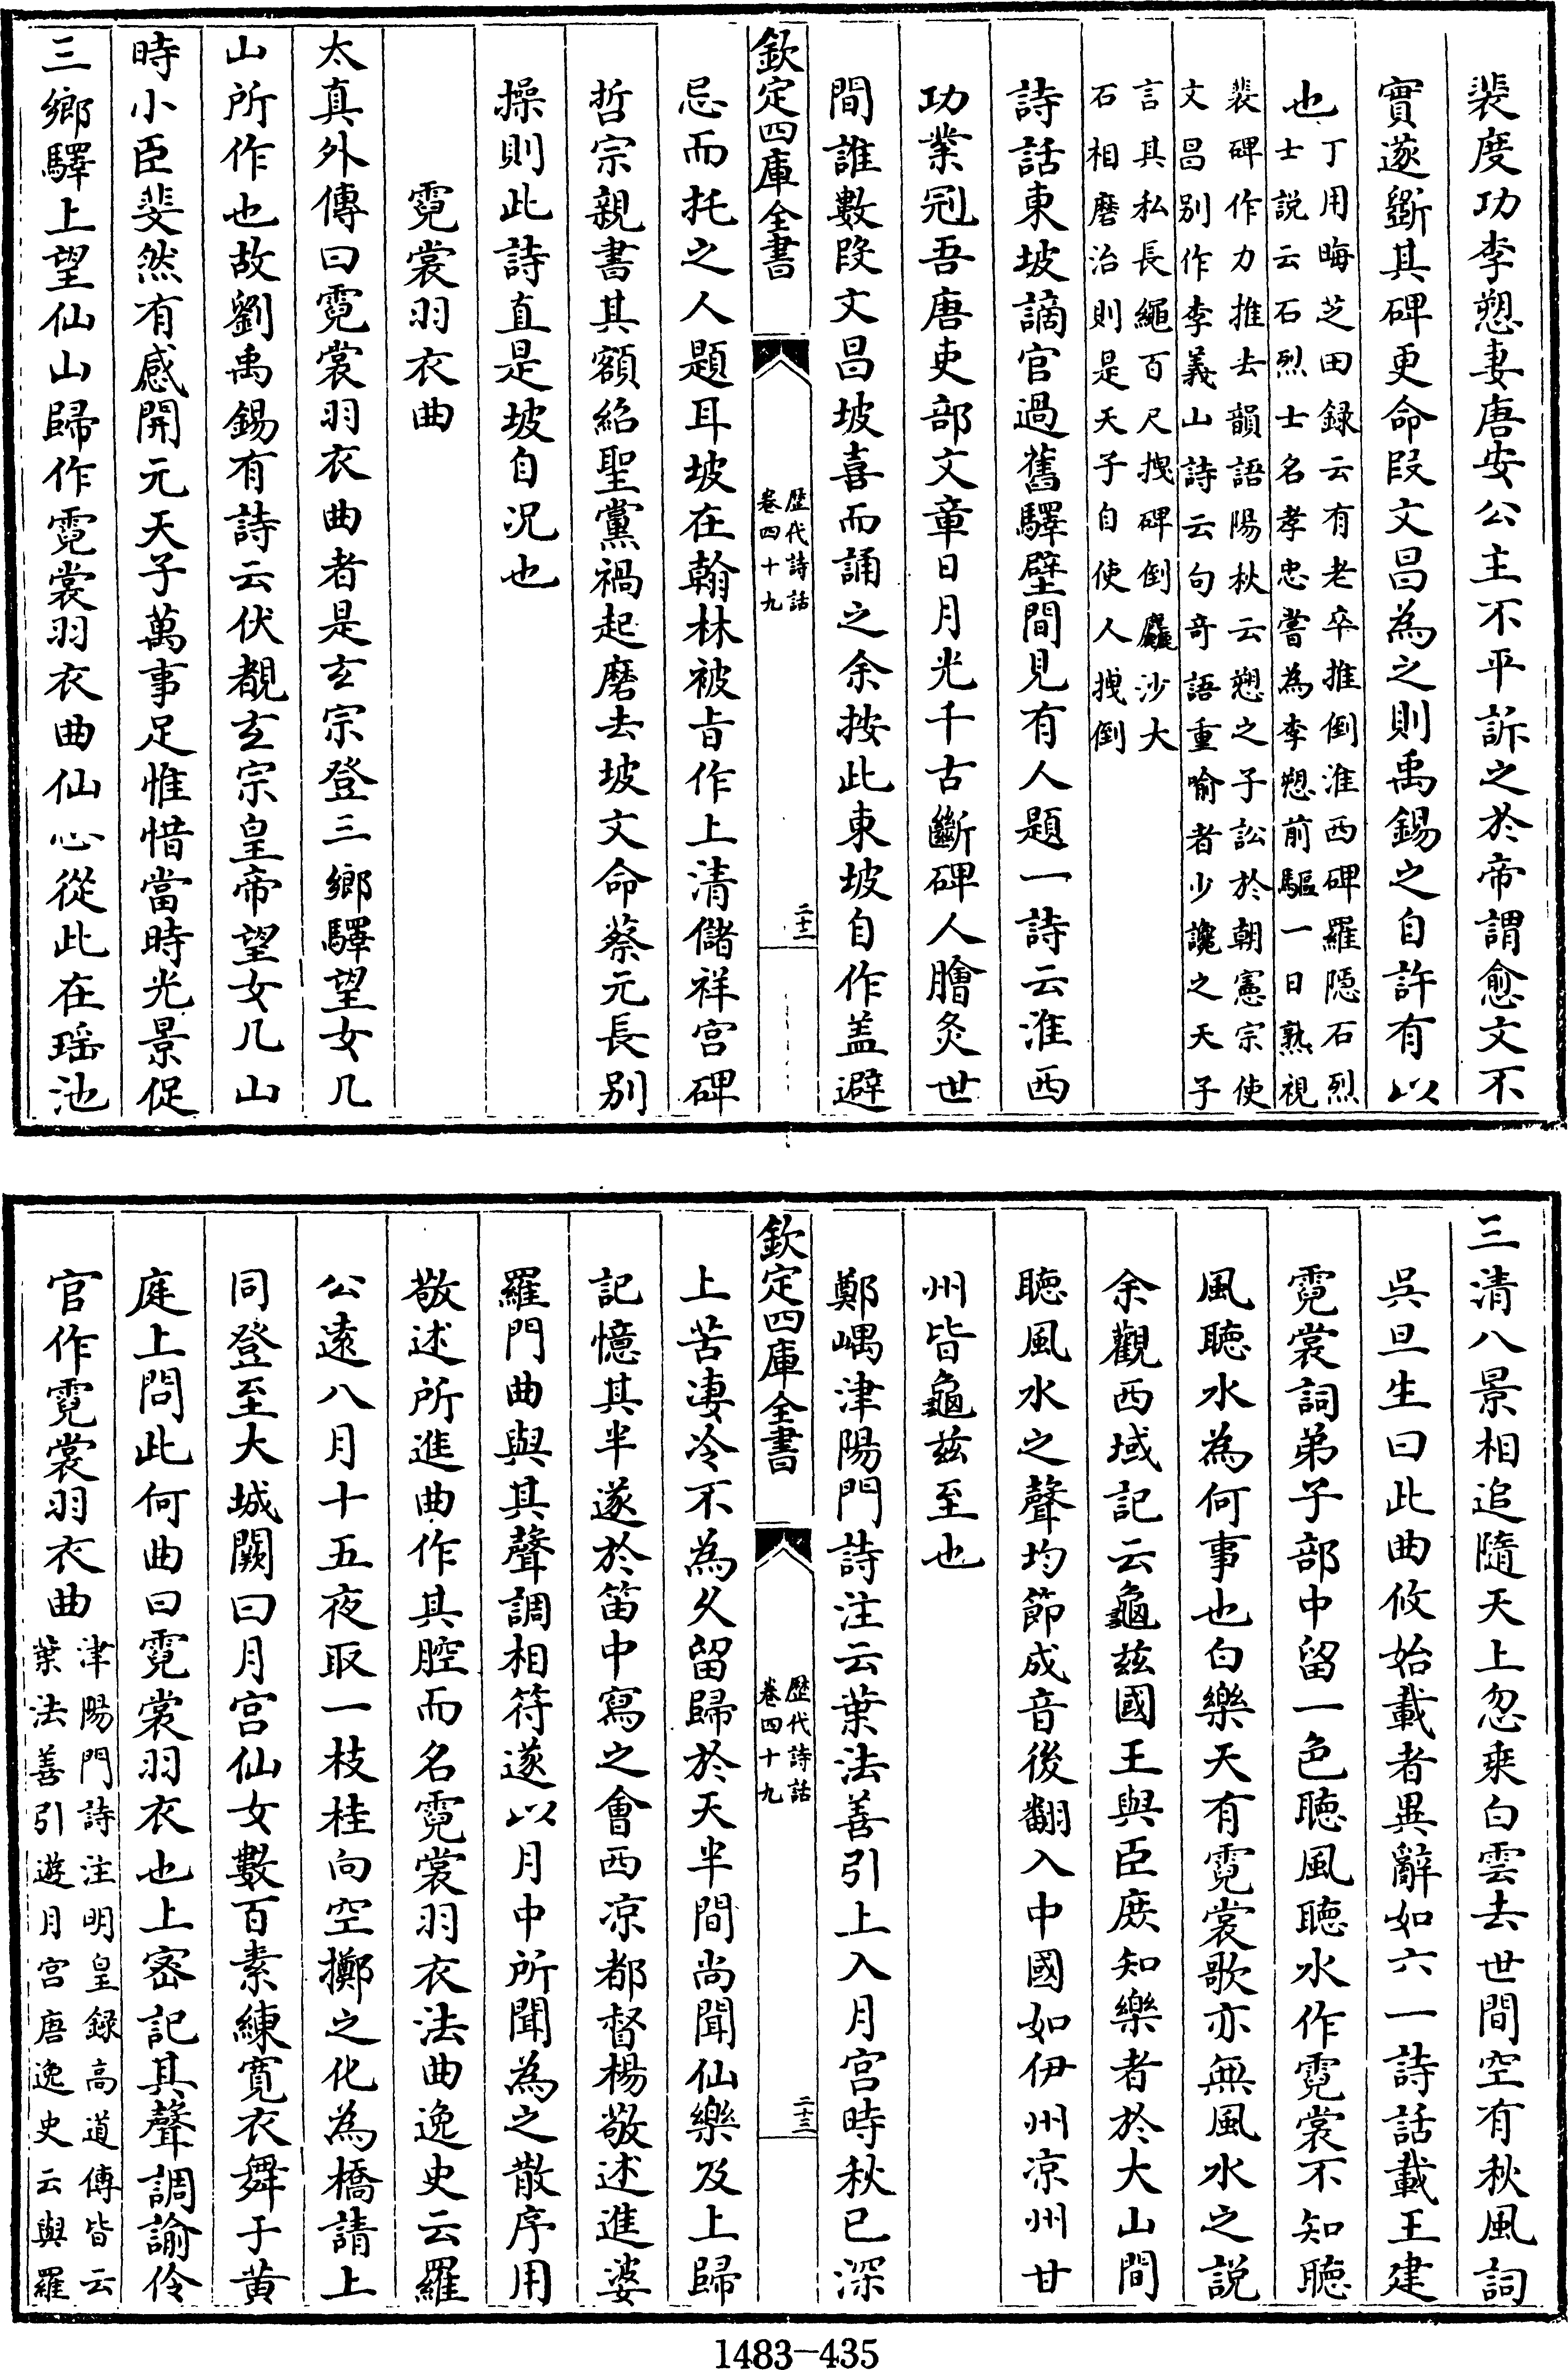 裴度功李愬妻唐安公主不平訴之於帝謂愈文不
實遂斵其碑更命段文昌為之則禹錫之自許有以
也丁用晦芝田録云有老卒推倒淮西碑羅隱石烈
士説云石烈士名孝忠嘗為李愬前驅一日熟視
裴碑作力推去韻語陽秋云愬之子訟於朝憲宗使
文昌别作李義山詩云句奇語重喻者少讒之天子
言其私長繩百尺拽碑倒麤沙大
石相磨治則是天子自使人拽倒
詩話東坡謫官過舊驛壁間見有人題一詩云淮西
功業冠吾唐吏部文章日月光千古斷碑人膾炙世
間誰數段文昌坡喜而誦之余按此東坡自作盖避
欽定四庫全書
歴代詩話
卷四十九
二十二
忌而托之人題耳坡在翰林被㫖作上清儲祥宫碑
哲宗親書其額紹聖黨禍起磨去坡文命蔡元長别
操則此詩直是坡自况也
霓裳羽衣曲
太真外傳曰霓裳羽衣曲者是玄宗登三鄉驛望女几
山所作也故劉禹錫有詩云伏覩玄宗皇帝望女几山
時小臣斐然有感開元天子萬事足惟惜當時光景促
三鄉驛上望仙山歸作霓裳羽衣曲仙心從此在瑶池
三清八景相追隨天上忽乘白雲去世間空有秋風詞
吳旦生曰此曲攸始載者異辭如六一詩話載王建
霓裳詞弟子部中留一色聽風聽水作霓裳不知聽
風聽水為何事也白樂天有霓裳歌亦無風水之説
余觀西域記云龜兹國王與臣庶知樂者於大山間
聽風水之聲均節成音後翻入中國如伊州凉州甘
州皆龜兹至也
鄭嵎津陽門詩注云葉法善引上入月宫時秋已深
欽定四庫全書
歴代詩話
卷四十九
二十三
上苦凄冷不為久留歸於天半間尚聞仙樂及上歸
記憶其半遂於笛中寫之會西凉都督楊敬述進婆
羅門曲與其聲調相符遂以月中所聞為之散序用
敬述所進曲作其腔而名霓裳羽衣法曲逸史云羅
公遠八月十五夜取一枝桂向空擲之化為橋請上
同登至大城闕曰月宫仙女數百素練寛衣舞于黄
庭上問此何曲曰霓裳羽衣也上密記其聲調諭伶
官作霓裳羽衣曲津陽門詩注明皇録高道傳皆云
葉法善引遊月宫唐逸史云與羅
1483-435